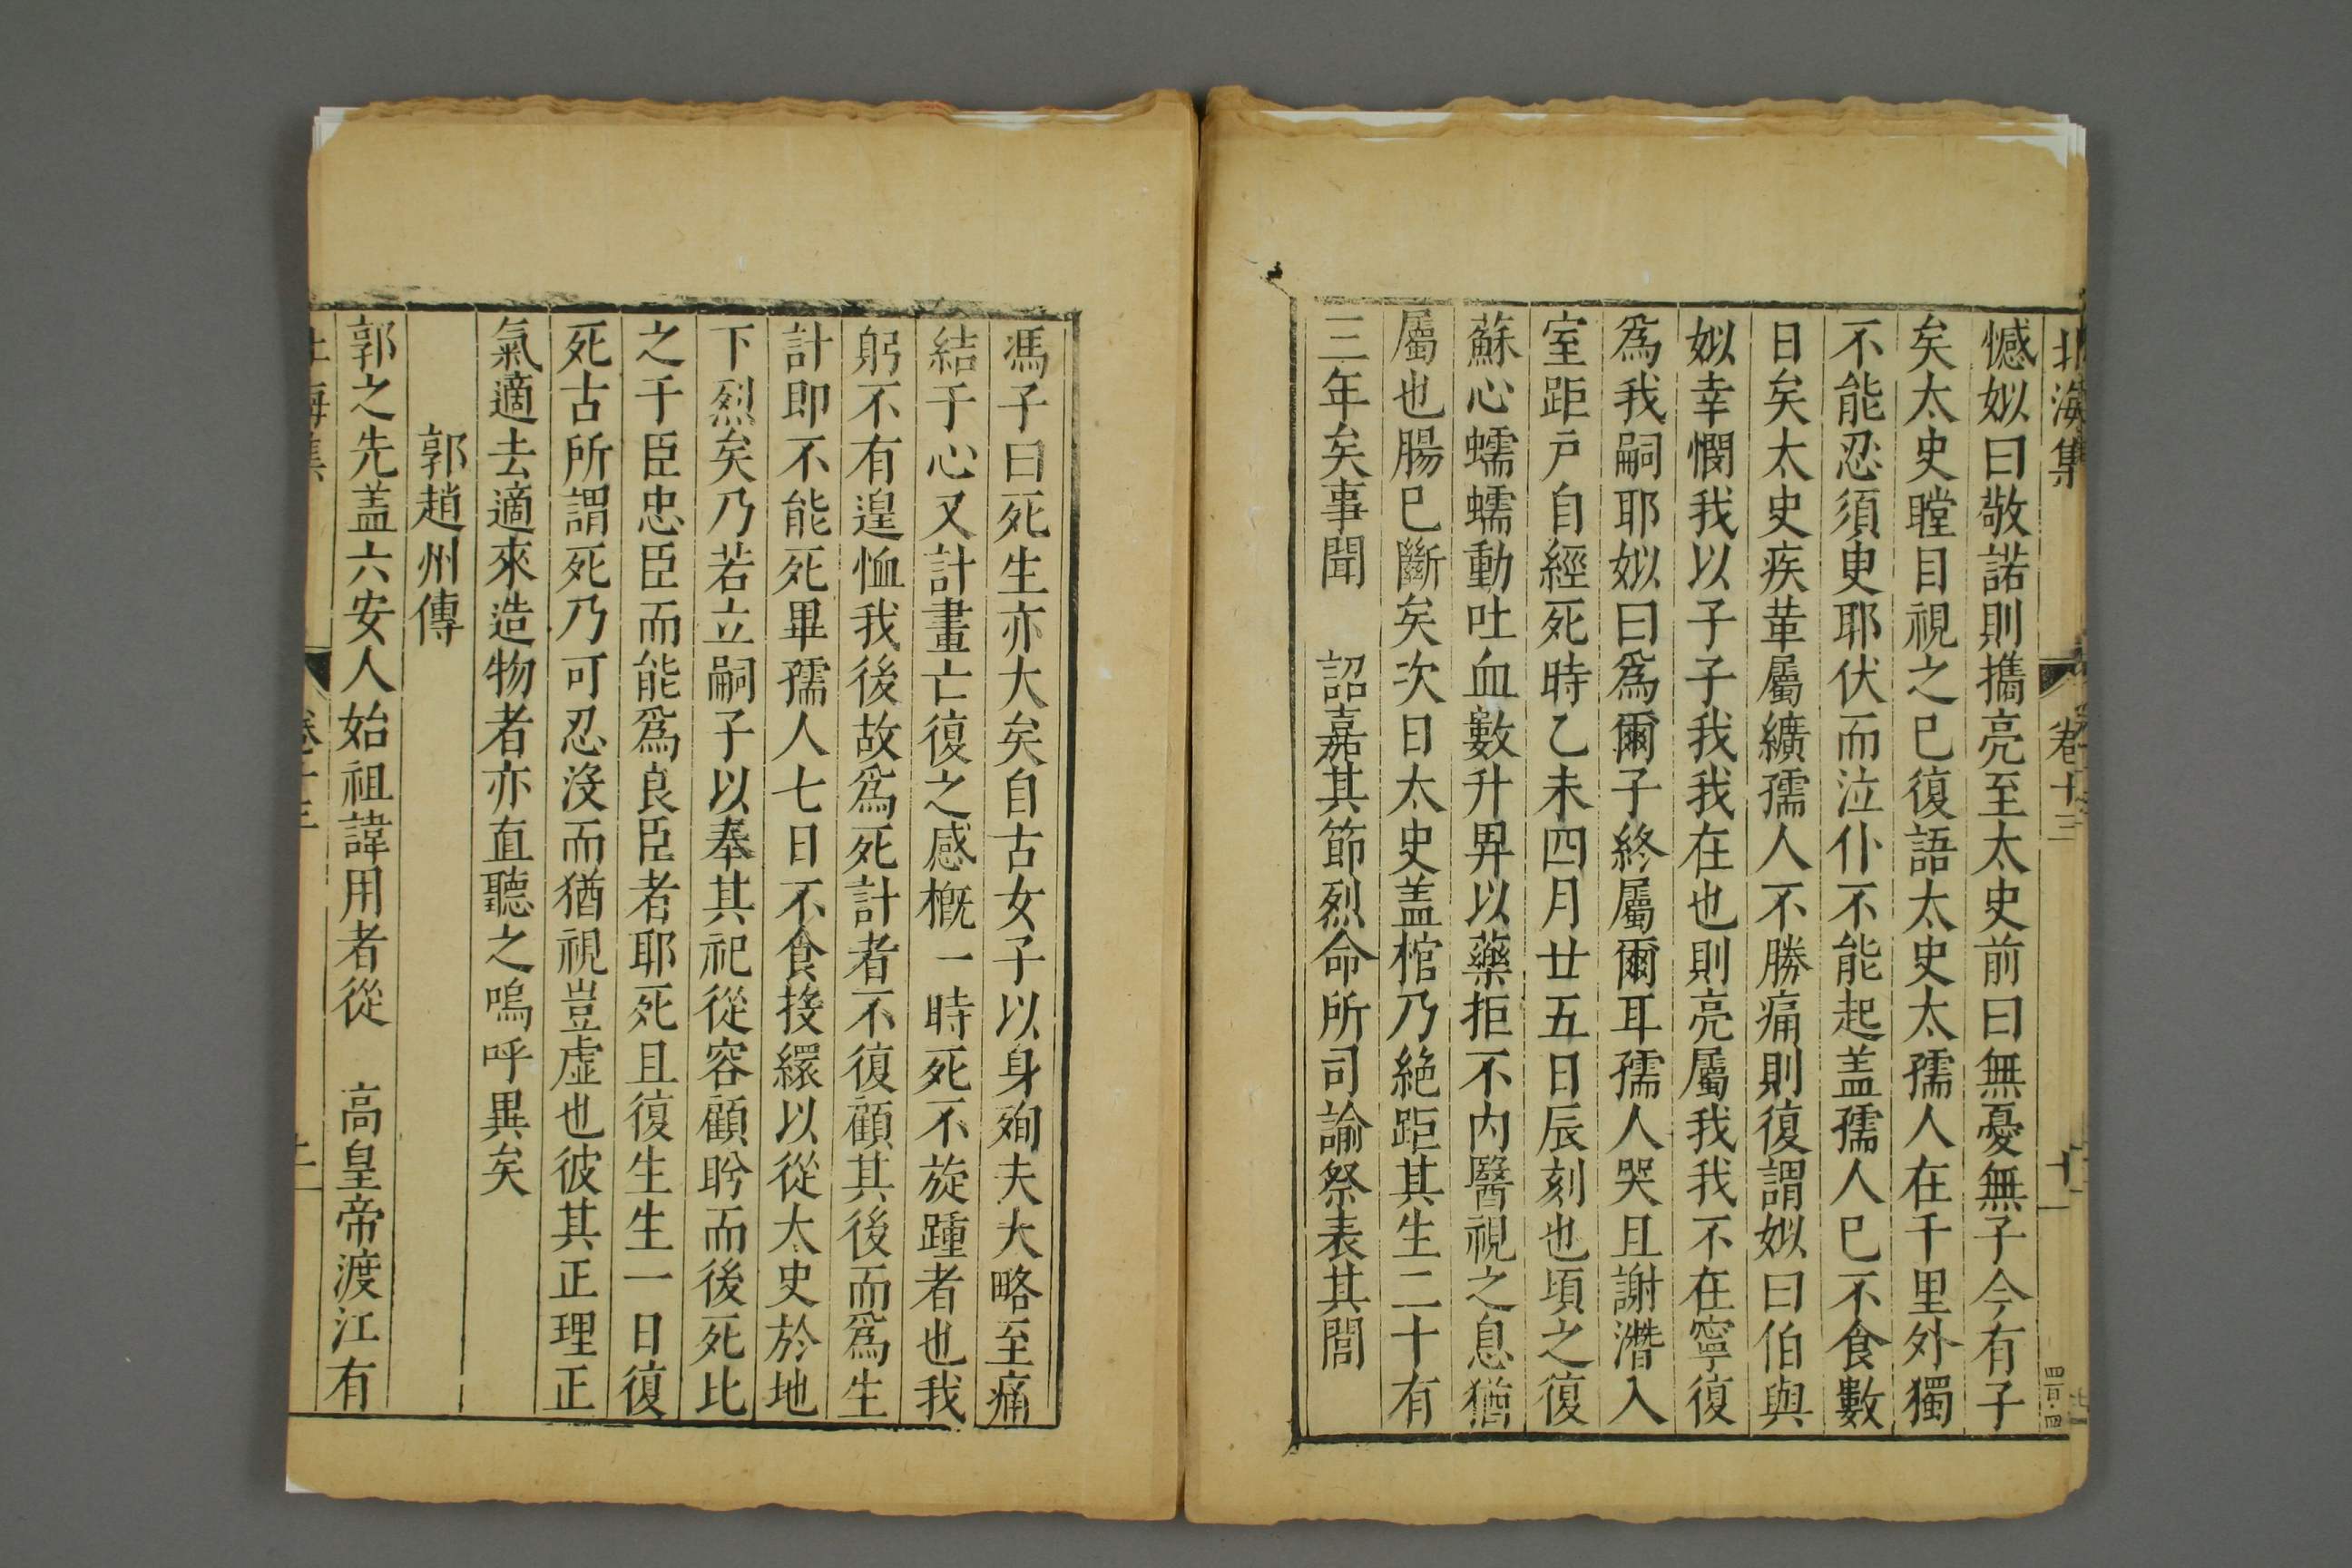 北海集 卷十三 十一
憾姒曰敬諾則攜亮至太史前曰無憂無子今有子
矣太史瞠目視之已復語太史太孺人在千里外獨
不能忍須臾耶伏而泣仆不能起盖孺人已不食數
日矣太史疾革屬纊孺人不勝痛則復謂姒曰伯與
姒幸憫我以子子我我在也則亮屬我我不在寧復
爲我嗣耶姒曰爲爾子終屬爾耳孺人哭且謝潛入
室距戶自經死時乙未四月廿五日辰刻也頃之復
蘇心蠕蠕動吐血數升畀以藥拒不内醫視之息猶
屬也腸已斷矣次日太史盖棺乃絶距其生二十有
三年矣事聞 詔嘉其節烈命所司諭祭表其閭
馮子曰死生亦大矣自古女子以身殉夫大略至痛
結于心又計畫亡復之感槪一時死不旋踵者也我
躬不有遑恤我後故爲死計者不復顧其後而爲生
計即不能死畢孺人七日不食接縲以從太史於地
下烈矣乃若立嗣子以奉其祀從容顧盻而後死比
之于臣忠臣而能爲良臣者耶死且復生生一日復
死古所謂死乃可忍沒而猶視豈虛也彼其正理正
氣適去適來造物者亦直聽之嗚呼異矣
郭趙州傳
郭之先盖六安人始祖諱用者從 高皇帝渡江有